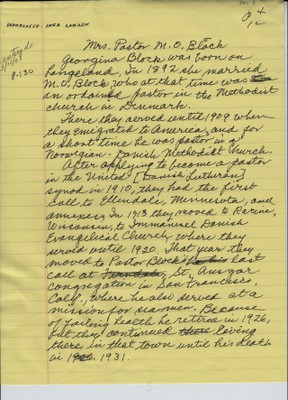 TRANSLATED INGA LARSEN
Mrs. Pastor M. O. Block
Georgina Block was born on
Langeland. In 1892 she married
M. O. Block, who at that time was
an ordained pastor in the Methodist
church in Denmark.
There they served until 1909 when
they emigrated to America, and for
a short time he was pastor in a
Norwegian-Danish Methodist Church.
After applying to become a pastor
in the United [Danish Lutheran]
synod in 1910, they had the first
call to Ellendale, Minnesota, and
annexes. In 1913 they moved to Racine,
Wisconsin, to Immanuel Danish
Evangelical Church where they
served until 1920. That year they
moved to Pastor Block's last
call at St. Ansgar
congregation in San Francisco,
Calif., where he also served at a
mission for seamen. Because
of failing health he retired in 1926,
but they continued living
there in that town until his death
in 1931.